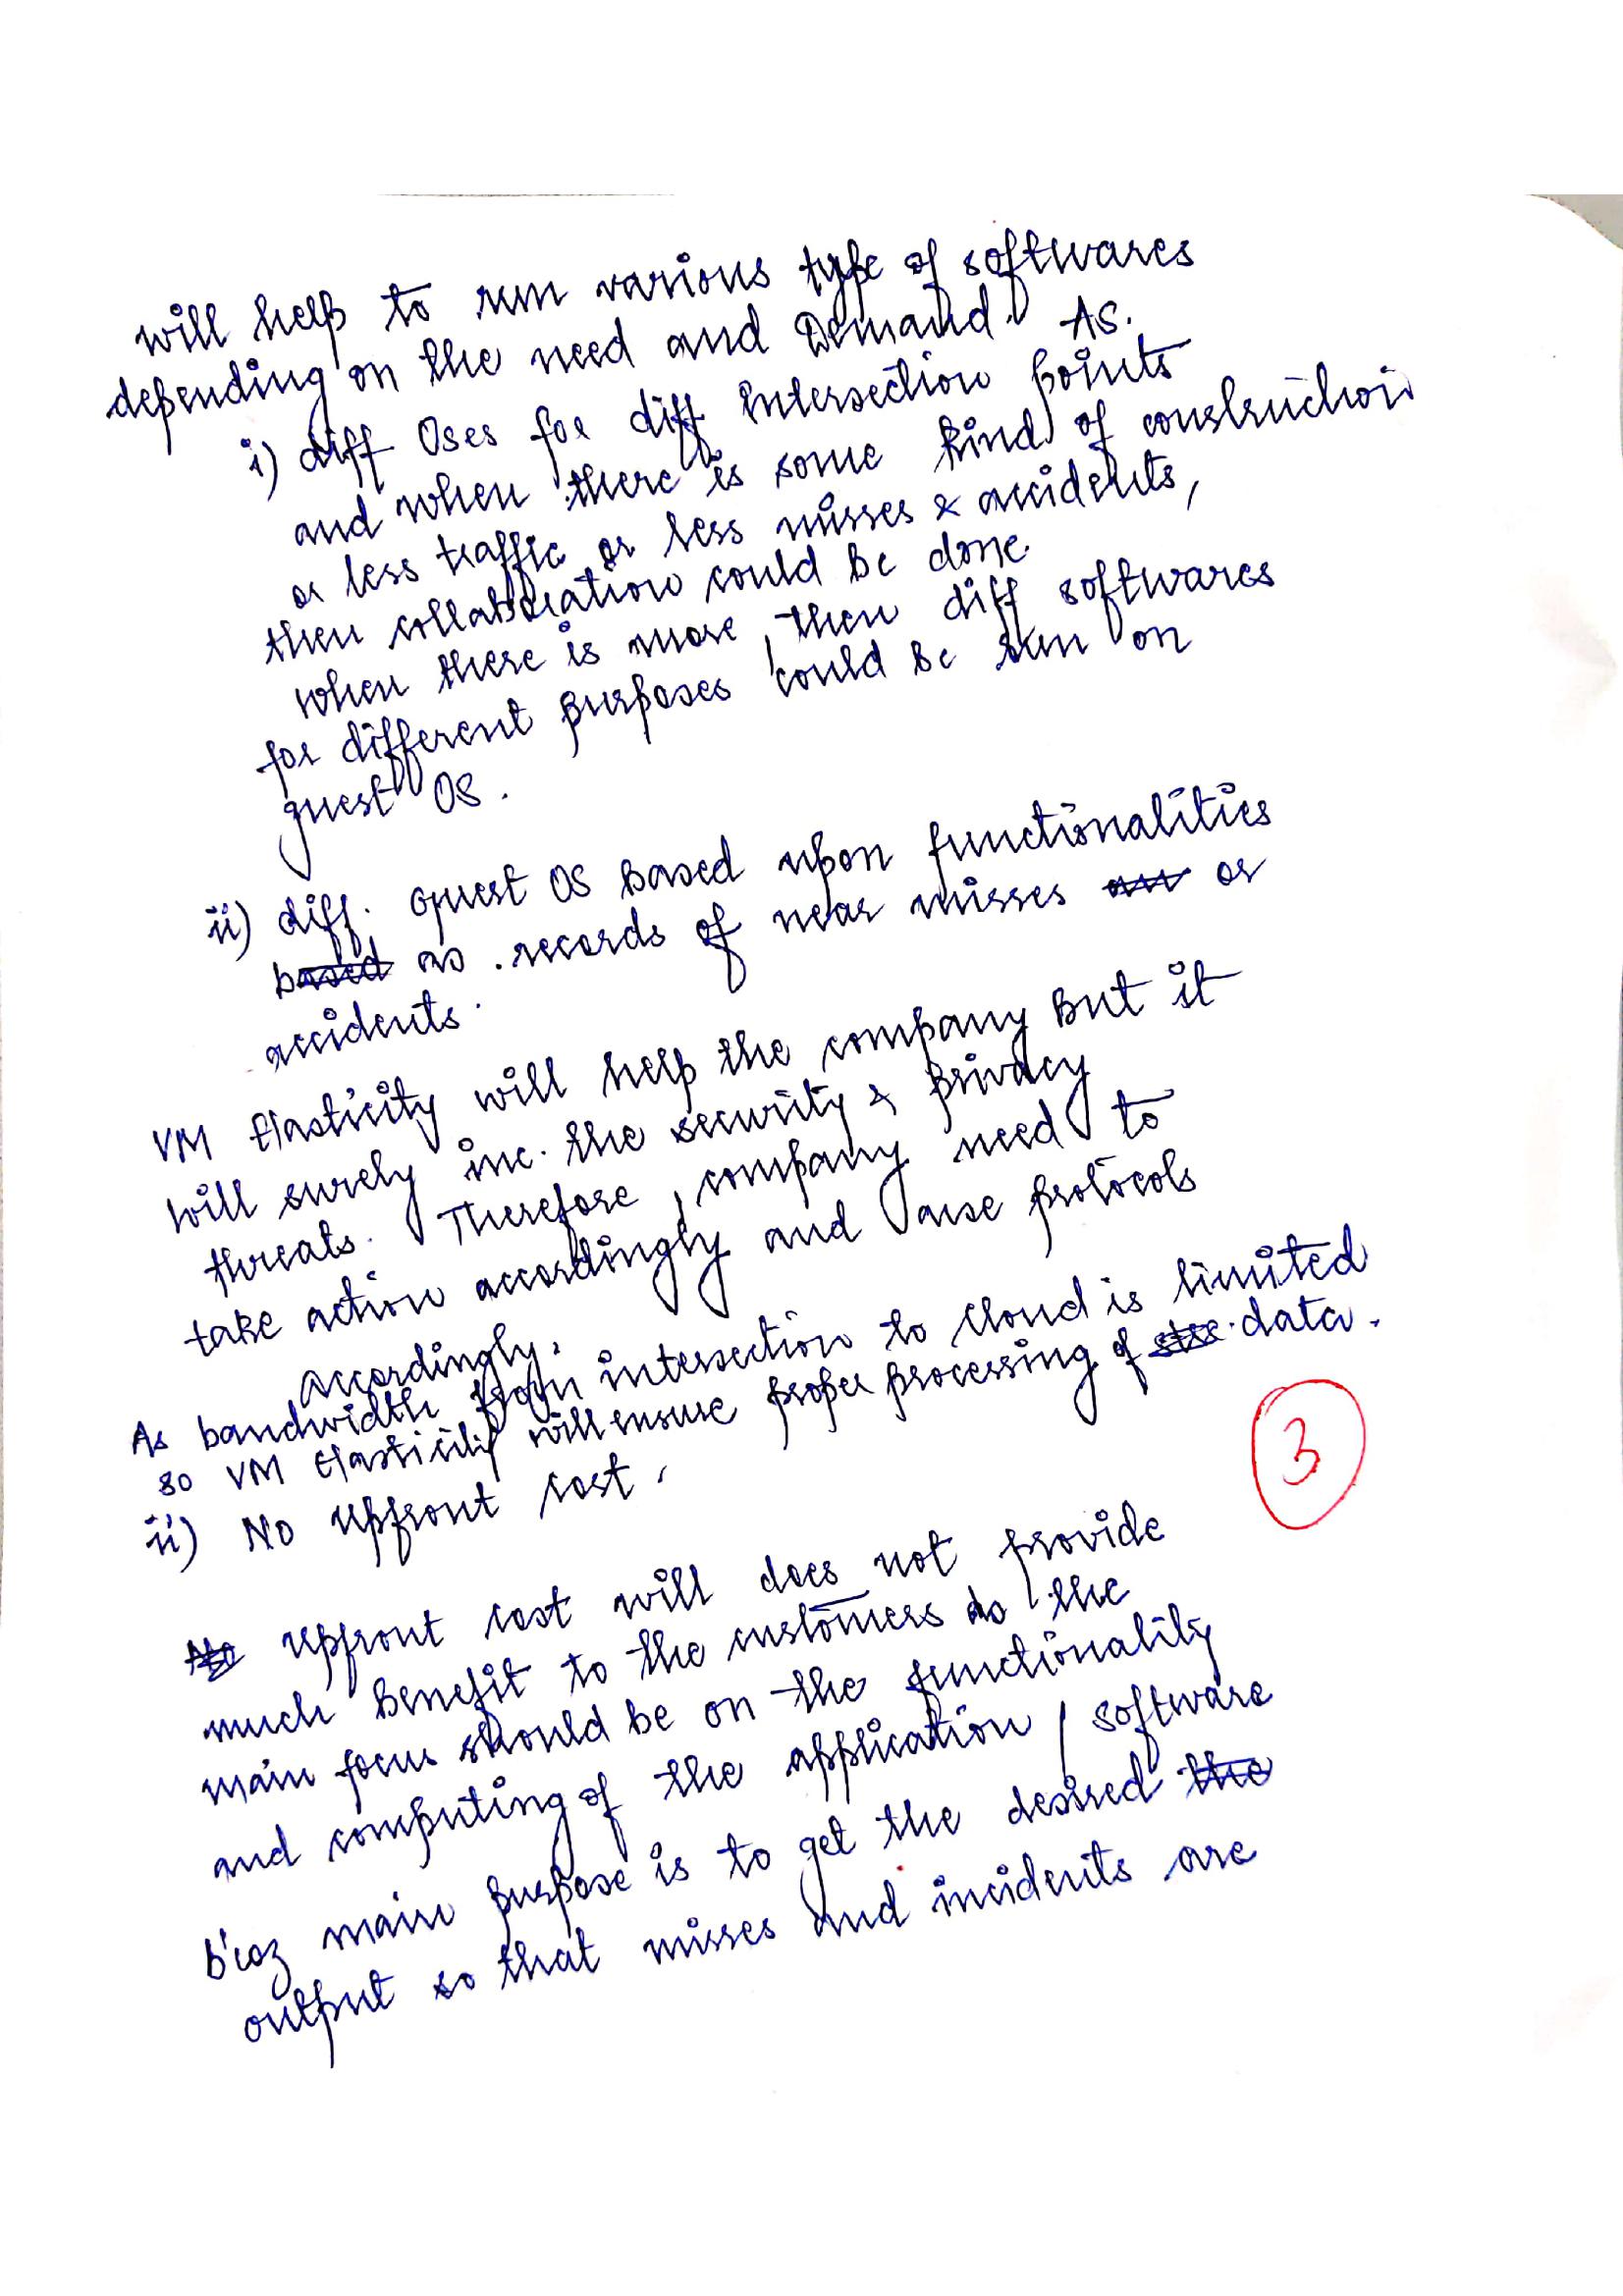 will help to run various type of softwares
depending on the need and Demand. AS.
i) diff Oses for diff intersection points
and when there is some kind of construction
or less traffic or less misses & accidents,
then collaboration could be done.
when there is more, then diff softwares
for different purposes could be run on
guest OS.
ii) diff. guest OS based upon functionalities
based as records of near misses or
accidents.
VM Elasticity will help the company but it
will surely inc. the security & privacy
threats. Therefore, company need to
take action accordingly and protocols
accordingly.
As bandwidth from intersection to cloud is limited
so VM Elasticity will ensure proper processing of data.
ii) No upfront cost.
3
upfront cost will does not provide
much benefit to the customers as the
main focus should be on the functionality
and computing of the application / software
b'coz main purpose is to get the desired the
output so that misses and incidents are